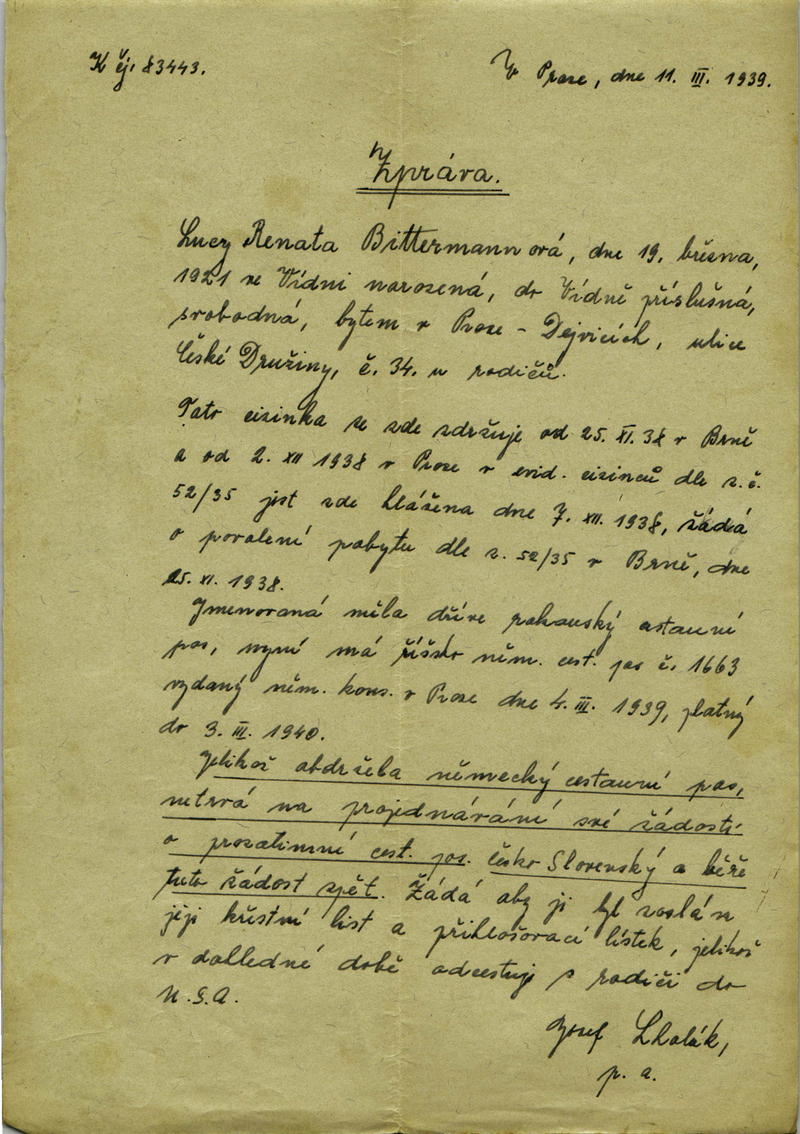 K čj. 83443.
V Praze, dne 11. III. 1939.
Zpráva.
Lucy Renata Bittermannová, dne 19. března,
1921 ve Vídni narozená, do Vídně příslušná,
svobodná, bytem v Praze - Dejvicích, ulice
České Družiny, č. 34. u rodičů.
Tato cizinka se zde zdržuje od 25. XI. 38 v Brně
a od 2. XII 1938 v Praze v evid. cizinců dle z. č.
52/35 jest zde hlášena dne 7. XII. 1938, žádá
o povolení pobytu dle z. 52/35 v Brně, dne
25. XI. 1938.
Jmenovaná měla dříve rakouský cestovní
pas, nyní má říšsko něm. cest. pas č. 1663
vydaný něm. kons. v Praze dne 4. III. 1939, platný
do 3. III. 1940.
Jelikož obdržela německý cestovní pas,
netrvá na projednávání své žádosti
o prozatimní cest. pas. česko Slovenský a béře
tuto žádost zpět. Žádá aby ji byl zaslán
její křestní list a přihlašovací lístek, jelikož
v dohledné době odcestuje s rodiči do
U.S.A.
Josef
p. a.